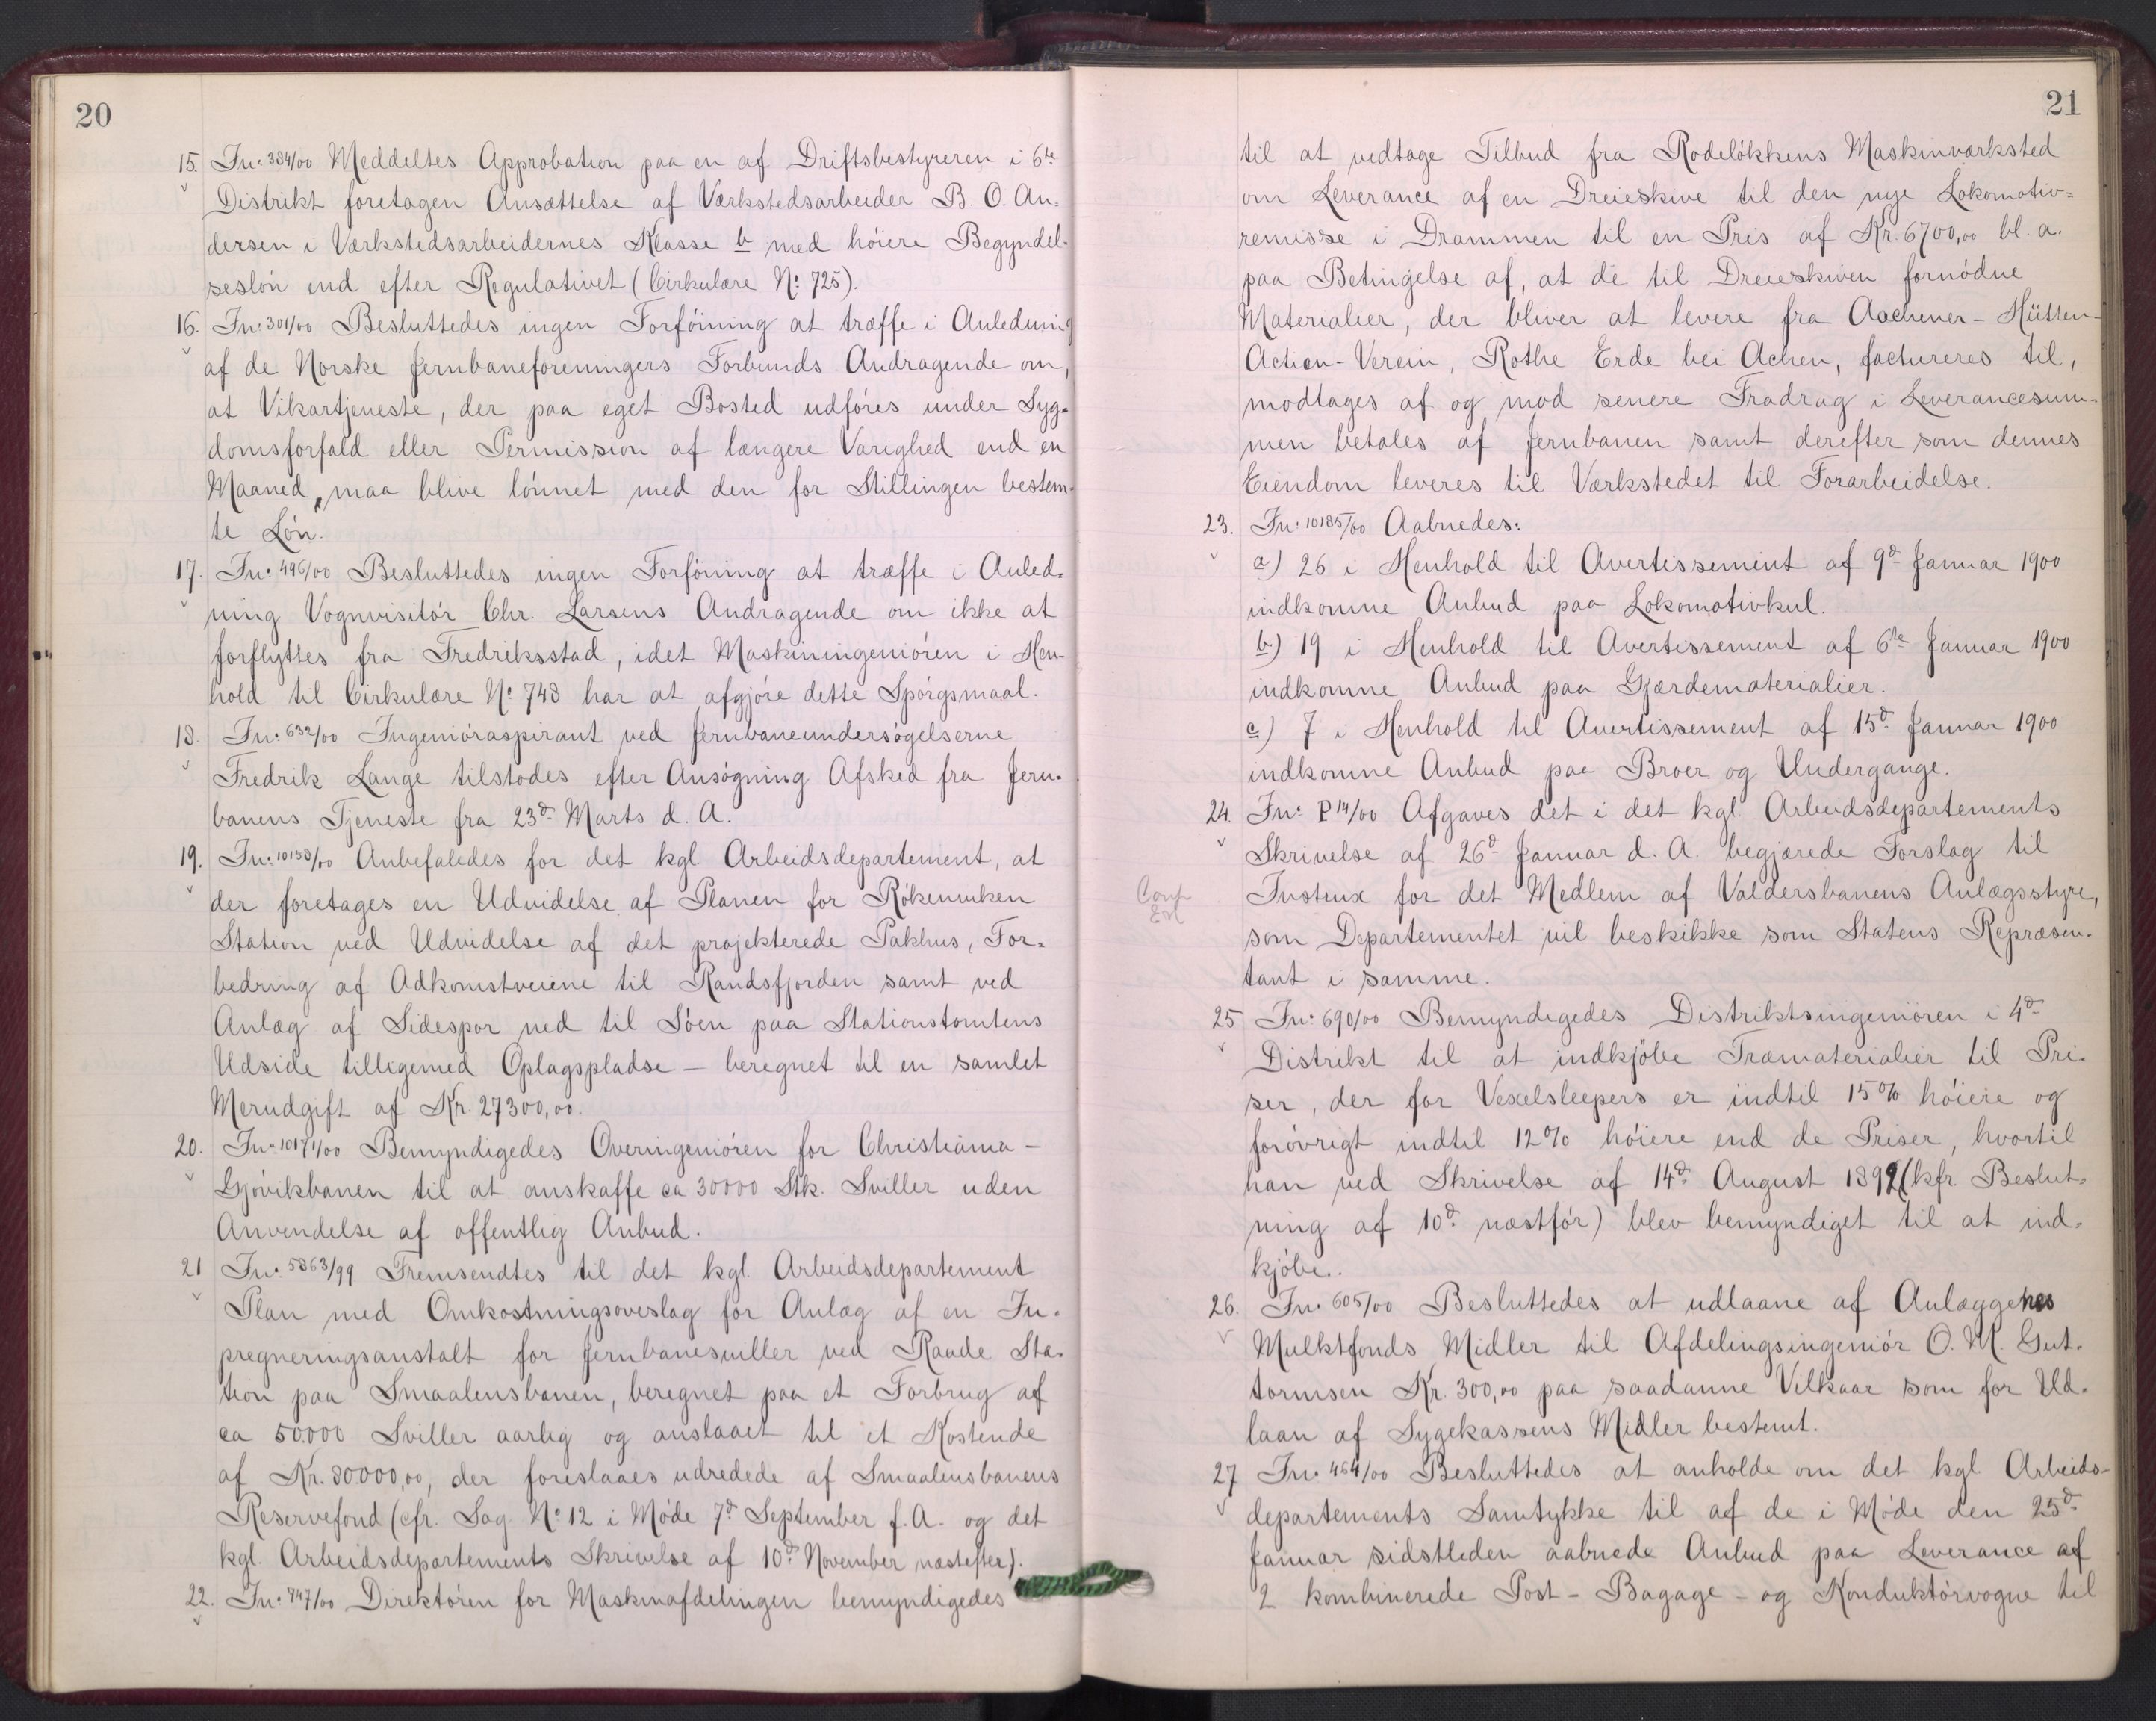 20
15. Jn: 384/00 Meddeltes Approbation paa en af Driftsbestyreren i 6te
Distrikt foretagen Ansættelse af Værkstedsarbeider B. O. An-
dersen i Værkstedsarbeidernes Klasse b med höiere Begyndel-
seslön end efter Regulativet (Cirkulære No 725).
16. Jn: 301/00 Besluttedes ingen Forföining at træffe i Anledning
af de Norske Jernbaneforeningers Forbunds Andragende om,
at Vikartjeneste, der paa eget Bosted udföres under Syg-
domsforfald eller Permission af længere Varighed end en
Maaned, maa blive lönnet med den for Stillingen bestem-
te Lön.
17. Jn: 496/00 Besluttedes ingen Forföining at træffe i Anled-
ning Vognvisitör Chr. Larsens Andragende om ikke at
forflyttes fra Fredriksstad, idet Maskiningeniören i Hen-
hold til Cirkulære No 748 har at afgjöre dette Spörgsmaal.
18. Jn: 632/00 Ingeniöraspirant ved Jernbaneundersögelserne
Fredrik Lange tilstodes efter Ansögning Afsked fra Jern-
banens Tjeneste fra 23d Marts d. A.
19. Jn: 10158/00 Anbefaledes for det kgl Arbeidsdepartement, at
der foretages en Udvidelse af Planen for Rökenviken
Station ved Udvidelse af det projekterede Pakhus, For-
bedring af Adkomstveiene til Randsfjorden samt ved
Anlæg af Sidespor ned til Söen paa Stationstomtens
Udside tilligemed Oplagspladse — beregnet til en samlet
Merudgift af Kr. 27300,00.
20. Jn: 10171/00 Bemyndigedes Overingeniören for Christiania -
Gjövikbanen til at anskaffe ca 30000 Stk. Sviller uden
Anvendelse af offentlig Anbud.
21 Jn: 5863/99 Fremsendtes til det kgl. Arbeidsdepartement
Plan med Omkostningsoverslag for Anlæg af en Im-
pregneringsanstalt for Jernbanesviller ved Raade Sta-
tion paa Smaalensbanen, beregnet paa et Forbrug af
ca 50.000 Sviller aarlig og anslaaet til et Kostende
af Kr. 80000,00, der foreslaaes udredede af Smaalensbanens
Reservefond (cfr. Sag No 12 i Möde 7d September f. A. og det
kgl. Arbeidsdepartements Skrivelse af 10d November næstefter).
22. Jn: 747/00 Direktören for Maskinafdelingen bemyndigedes
21
til at vedtage Tilbud fra Rodelökkens Maskinværksted
om Leverance af en Dreieskive til den nye Lokomotiv-
remisse i Drammen til en Pris af Kr. 6700,00 bl. a.
paa Betingelse af, at de til Dreieskiven fornödne
Materialier, der bliver at levere fra Aachener - Hütten-
Actien-Verein, Rothe Erde bei Achen, factureres til,
modtages af og mod senere Fradrag i Leverancesum-
men betales af Jernbanen samt derefter som dennes
Eiendom leveres til Værkstedet til Forarbeidelse.
23. Jn: 10185/00 Aabnedes:
a) 26 i Henhold til Avertissement af 9d Januar 1900
indkomne Anbud paa Lokomotivkul.
b) 19 i Henhold til Avertissement af 6te Januar 1900
indkomne Anbud paa Gjærdematerialier.
c) 7 i Henhold til Avertissement af 15d Januar 1900
indkomne Anbud paa Broer og Undergange.
24. Jn: P 14/00 Afgaves det i det kgl Arbeidsdepartements
Skrivelse af 26d Januar d. A. begjærede Forslag til
Conf Instrux for det Medlem af Valdersbanens Anlægsstyre,
som Departementet vil beskikke som Statens Repræsen-
tant i samme.
25 Jn: 690/00 Bemyndigedes Distriktsingeniören i 4d
Distrikt til at indkjöbe Træmaterialier til Pri-
ser, der for Vexelsleepers er indtil 15% höiere og
forövrigt indtil 12% höiere end de Priser, hvortil
han ved Skrivelse af 14d August 1899 (kfr. Beslut-
ning af 10d næstför) blev bemyndiget til at ind-
kjöbe.
26. Jn: 605/00 Besluttedes at udlaane af Anlæggenes
Mulktfonds Midler til Afdelingsingeniör O. M. Gut-
tormsen Kr. 300,00 paa saadanne Vilkaar som for Ud-
laan af Sygekassens Midler bestemt.
27 Jn: 464/00 Besluttedes at anholde om det kgl Arbeids-
departements Samtykke til af de i Möde den 25d
Januar sidstleden aabnede Anbud paa Leverance af
2 kombinerede Post - Bagage - og Konduktörvogne til